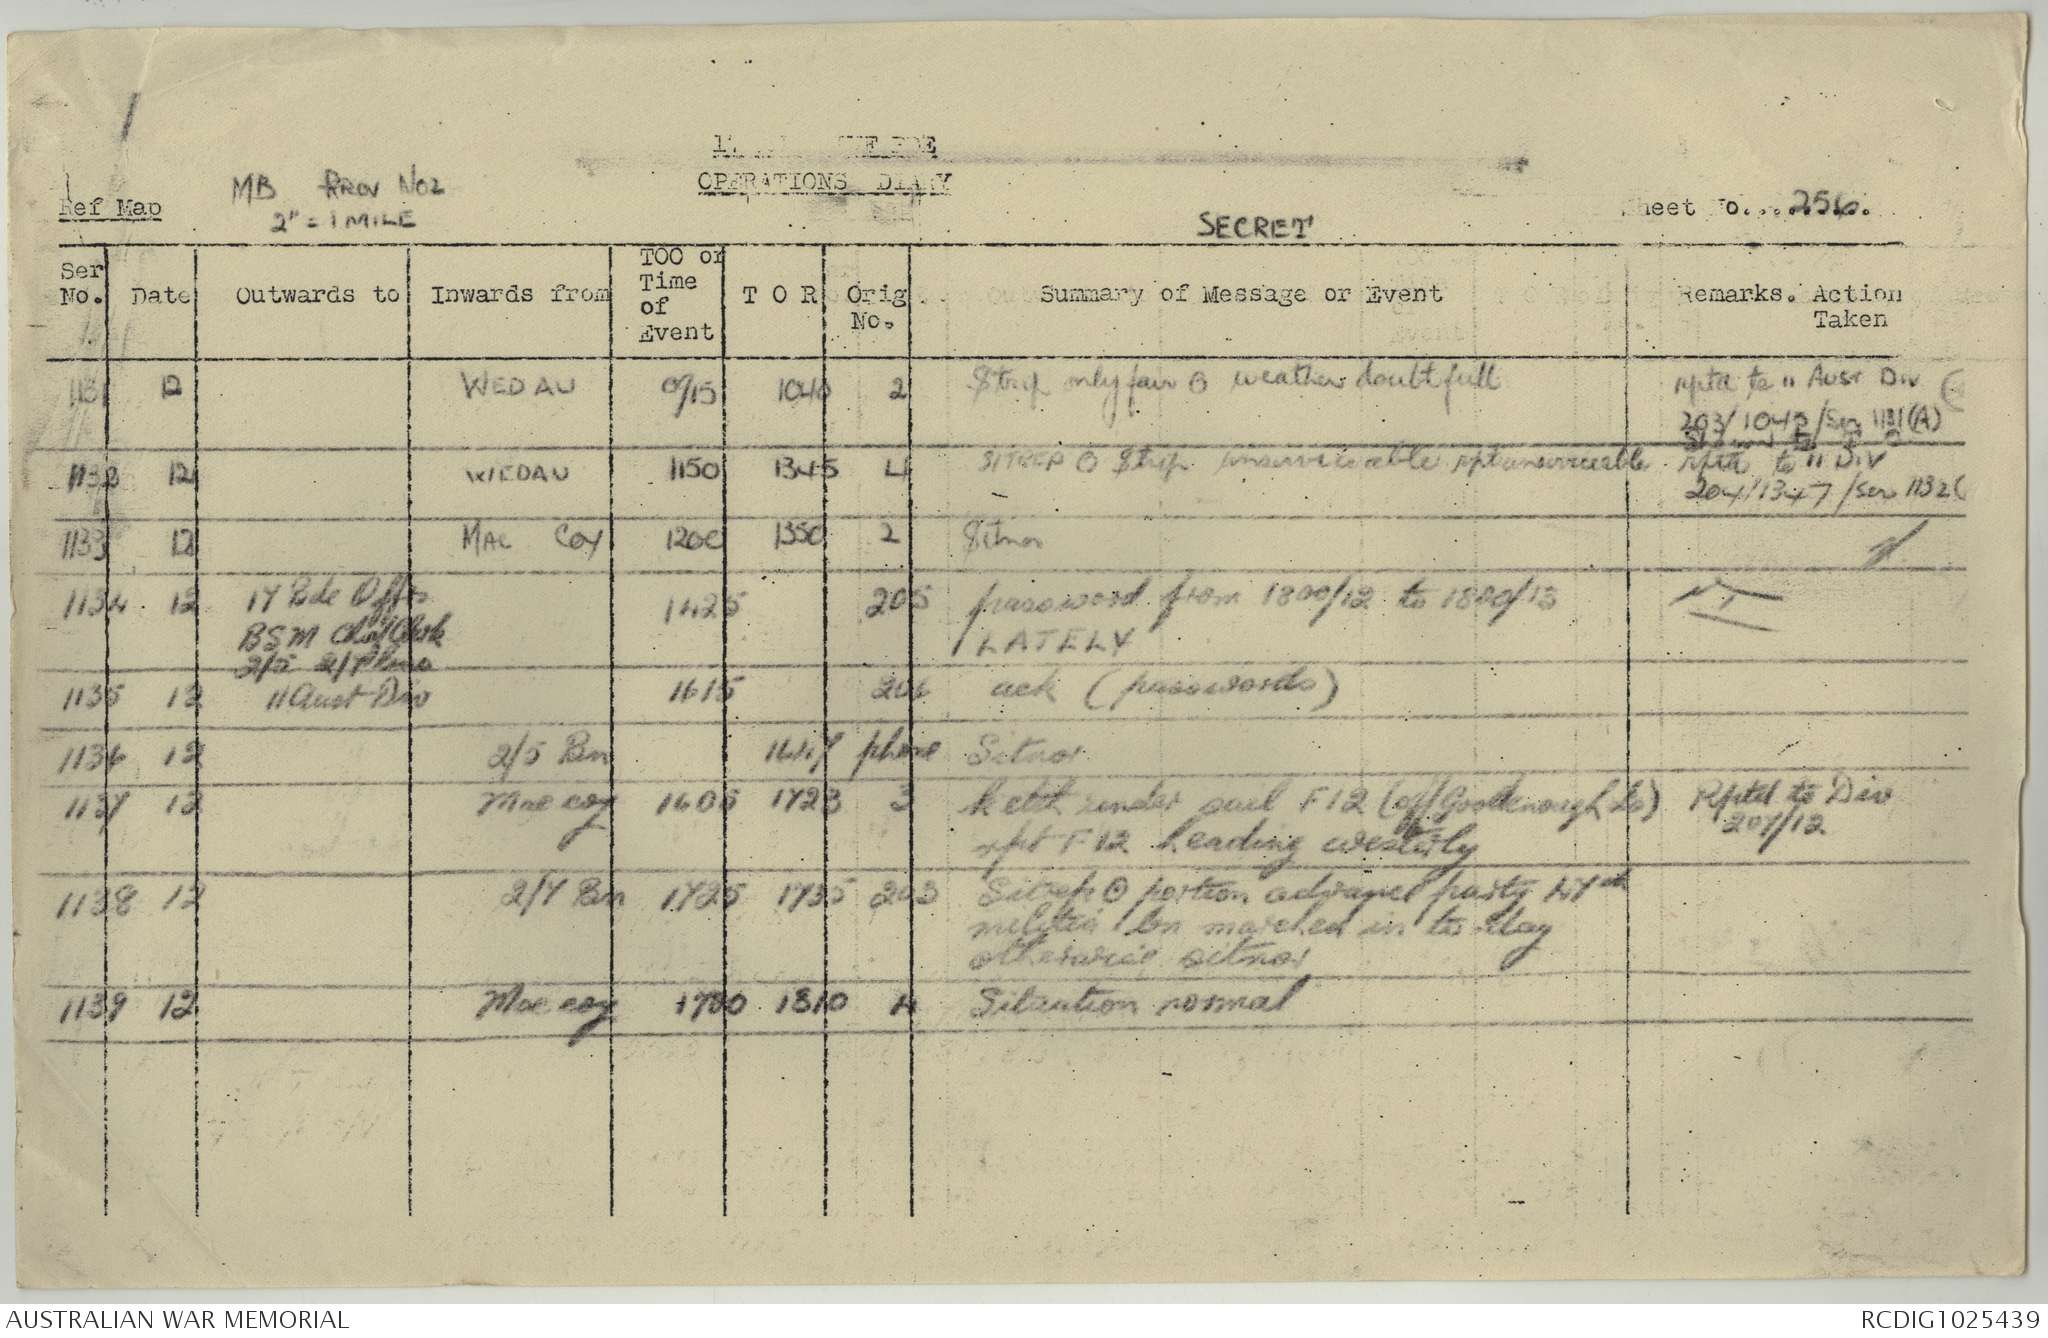 OPERATIONS DIARY
Ref Map
MB PROV NO2
2" = 1 MILE
SECRET
Sheet No. 256.
Ser No. Date Outwards to Inwards from TOO or Time of Event T O R Orig No. Summary of Message or Event Remarks. Action Taken
1131 12 WEDAU 0715 1040 2 Strip only fair O weather doubtfull rptd to 11 Aust Div
203/1042/Ser 1131(A)
1132 12 WEDAU 1150 1345 4 SITREP O Strip unserviceable rpt unserviceable rptd to 11 Div
204/1347/Ser 1132(
1133 12 MAC COY 1200 1350 2 Sitnor
1134 12 17 Bde Offrs 1425 205 password from 1800/12 to 1800/13
BSM Chief Clerk LATELY
2/5 2/7 Bns
1135 12 11 Aust Div 1615 206 ack (passwords)
1136 12 2/5 Bn 1647 phone Sitnor
1137 12 Mac coy 1605 1723 3 ketch under sail F12 (off Goodenough Is) Rptd to Div
rpt F12 heading westerly 207/12
1138 12 2/7 Bn 1725 1735 203 Sitrep O portion advance party 47th
militia bn marched in to day
otherwise sitnor
1139 12 Mac coy 1700 1810 4 Sitaution normal
AUSTRALIAN WAR MEMORIAL
RCDIG1025439